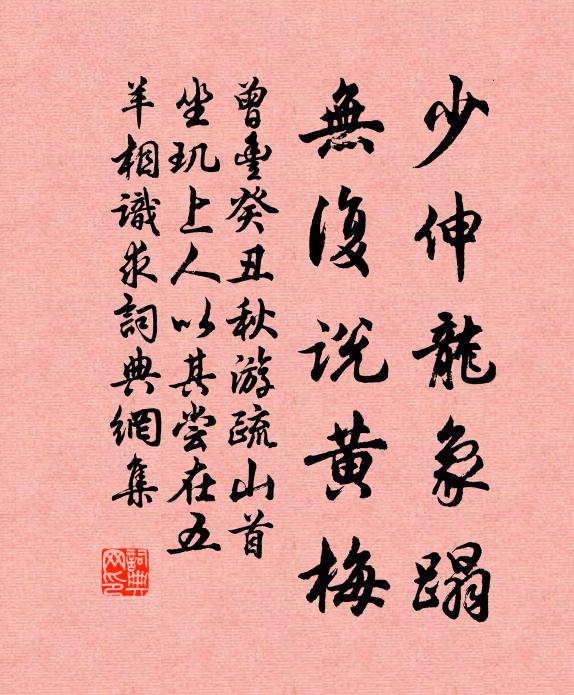 少伸龍象蹋
無復說黃梅
曾豊癸丑秋游疏山首
坐玑上人以其嘗在五
羊相識求詞典網集
詞典网印